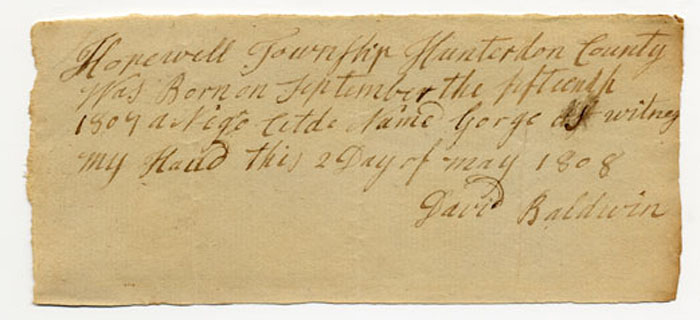 Hopewell Township Hunterdon County
Was Born on September the fifteenth
1807 a Nego Cilde Named Gorge as witnes
my Hand this 2 Day of may 1808
David Baldwin